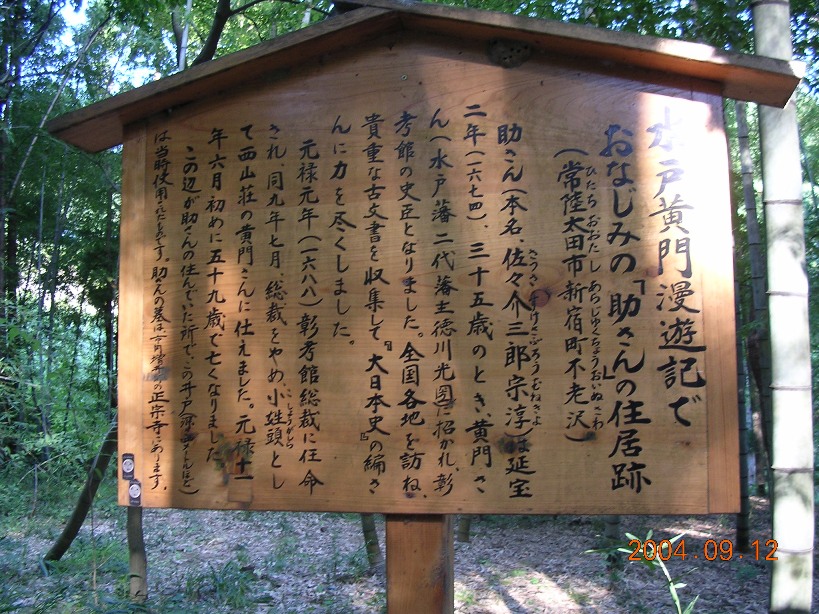 水戸黄門漫遊記で
おなじみの「助さんの住居跡」
ひたち おおたし あらじゅくちょうおいぬさわ
(常陸太田市新宿町不老沢)
さっさすけさぶろうむねきよ
助さん(本名、佐々介三郎宗淳)は延宝
二年(一六七四)、三十五歳のとき、黄門さ
ん(水戸藩二代藩主徳川光圀)に招かれ、彰
考館の史臣となりました。全国各地を訪ね、
貴重な古文書を収集して『大日本史』の編さ
んに力を尽くしました。
元禄元年(一六八八)彰考館総裁に任命
され、同九年七月、総裁をやめ、小姓頭とし
こしょうがしら
て西山荘の黄門さんに仕えました。元禄十一
年六月初めに五十九歳で亡くなりました
この辺が助さんの住んでいた所で、この井戸
は当時使用したものです。助さんの墓は
正宗寺にあります。
2004.09.12